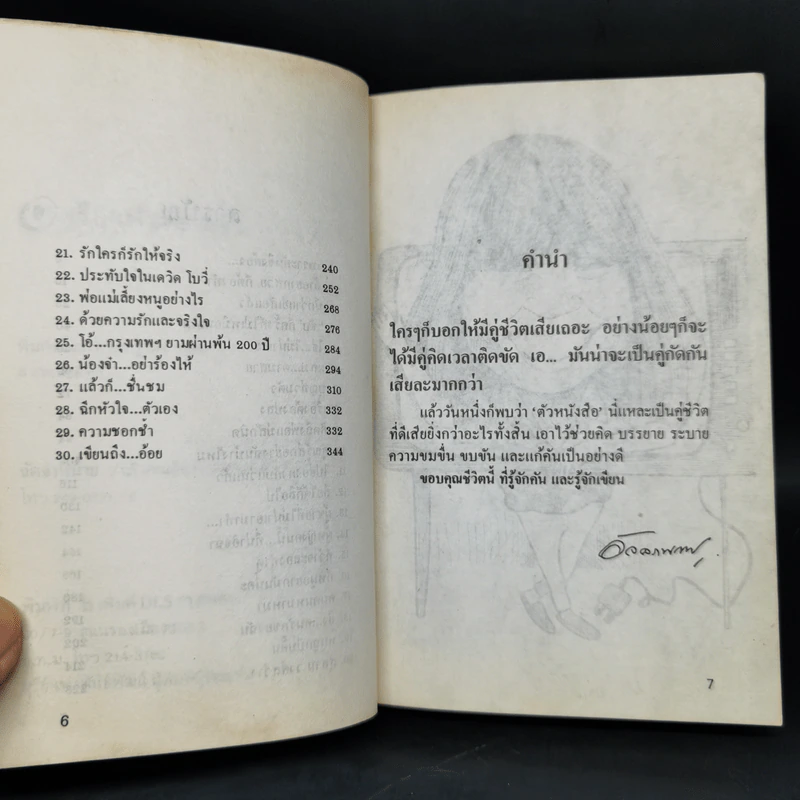 21. รักใครก็รักให้จริง 240
22. ประทับใจในเดวิด โบวี่ 252
23. พ่อแม่เลี้ยงหนูอย่างไร 268
24. ด้วยความรักและจริงใจ 276
25. โอ้...กรุงเทพฯ ยามผ่านพ้น 200 ปี 284
26. น้องจ๋า...อย่าร้องไห้ 294
27. แล้วก็...ชื่นชม 310
28. ฉีกหัวใจ...ตัวเอง 332
29. ความชอกช้ำ 332
30. เขียนถึง...อ้อย 344
6
คำนำ
ใครๆก็บอกให้มีคู่ชีวิตเสียเถอะ อย่างน้อยๆก็จะ
ได้มีคู่คิดเวลาติดขัด เอ... มันน่าจะเป็นคู่กัดกัน
เสียละมากกว่า
แล้ววันหนึ่งก็พบว่า ‘ตัวหนังสือ’ นี้แหละเป็นคู่ชีวิต
ที่ดีเสียยิ่งกว่าอะไรทั้งสิ้น เอาไว้ช่วยคิด บรรยาย ระบาย
ความขมขื่น ขบขัน และแก้คันเป็นอย่างดี
ขอบคุณชีวิตนี้ ที่รู้จักคัน และรู้จักเขียน
7